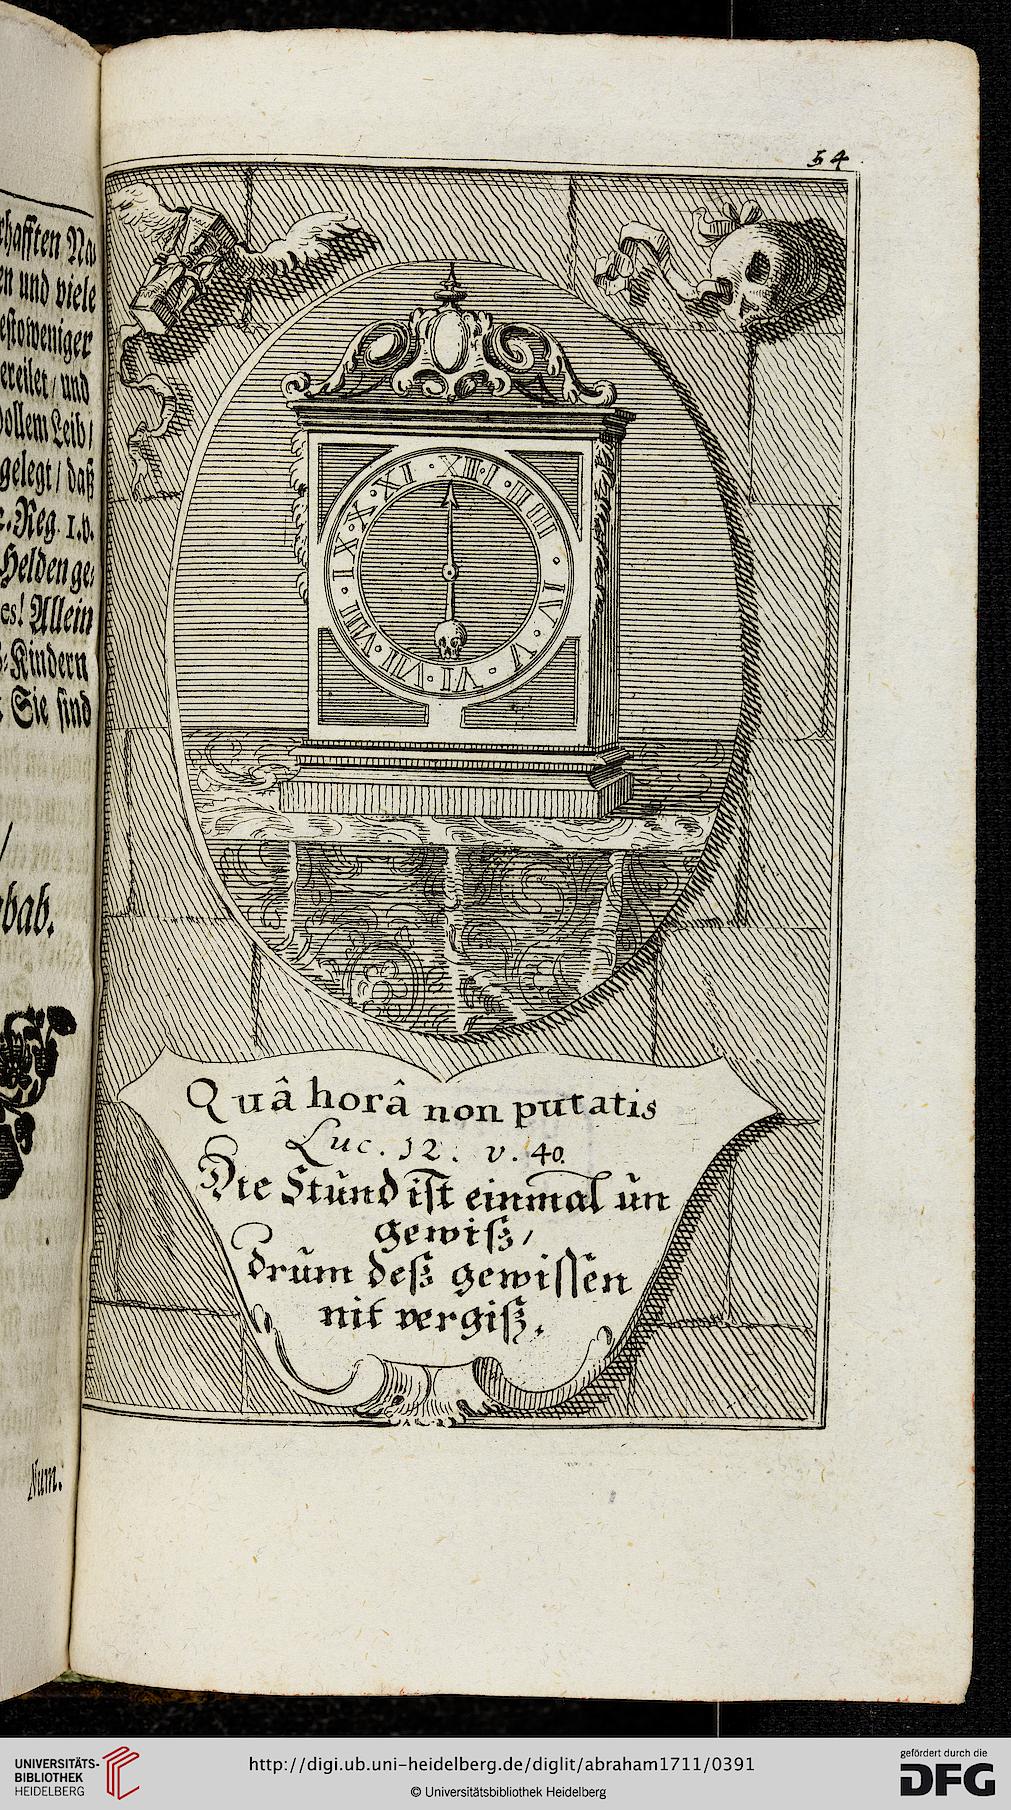 54
hafften Na-
en und viele
estoweniger
ereilet / und
vollem Leib /
gelegt / daß
Reg. 1. v.
Helden ge-
es! Allein
Kindern
Sie sind
bab.
Num.
XII · I · II · III · IV · V · VI · VII · VIII · IX · X · XI
Quâ horâ non putatis
Luc. 12. v. 40.
Die Stund ist einmal un
gewiß /
drum deß gewissen
nit vergiß.
UNIVERSITÄTS-
BIBLIOTHEK
HEIDELBERG
http://digi.ub.uni-heidelberg.de/diglit/abraham1711/0391
© Universitätsbibliothek Heidelberg
gefördert durch die
DFG